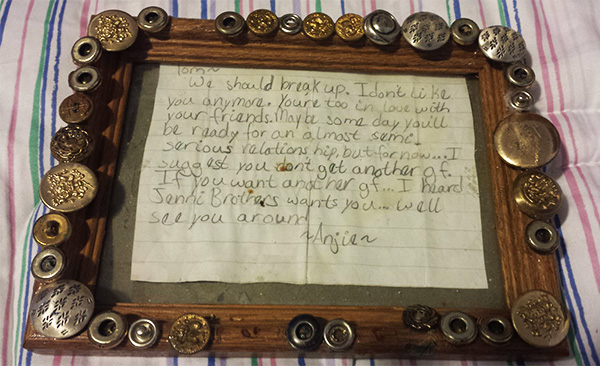 Tom~
We should break up. I don't Like
you anymore. You're too in love with
your friends. Maybe some day you'll
be ready for an almost semi
serious relationship, but for now... I
suggest you don't get another gf.
If you want another gf... I heard
Jenni Brothers wants you... well
see you around
~Anjie~